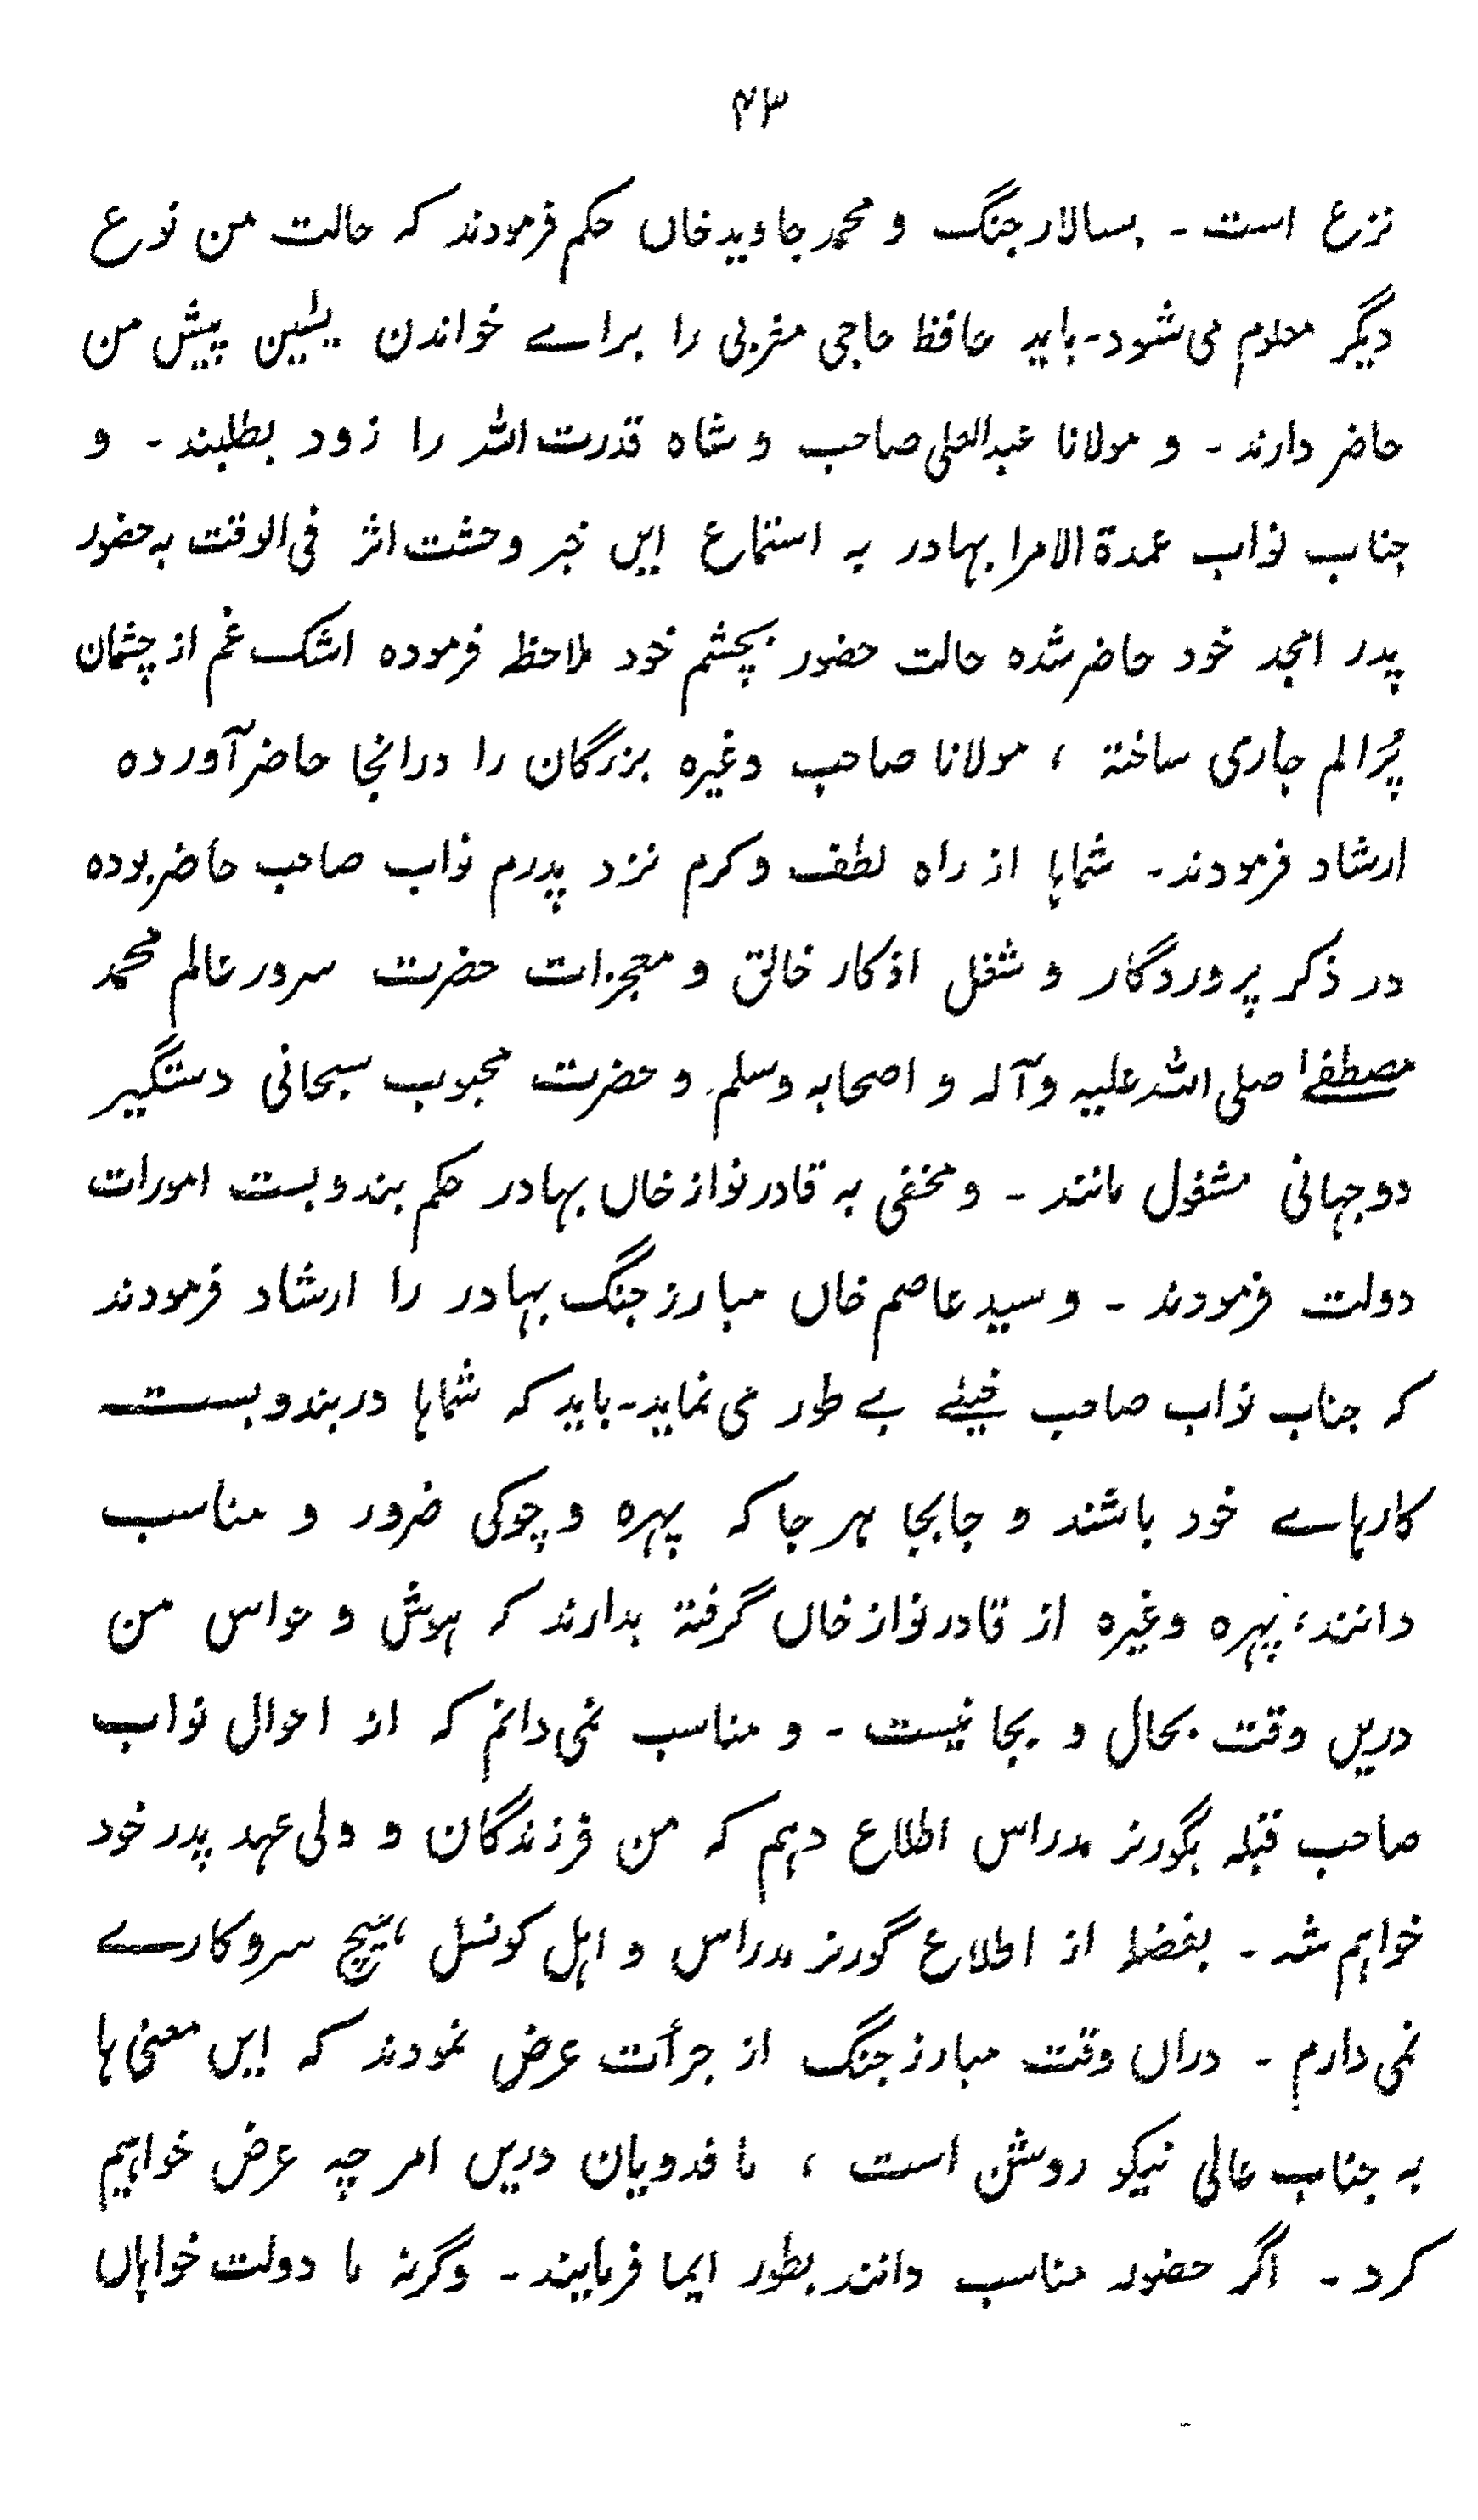 ۴۳
نزع است ۔ بسالار جنگ و محمد جاوید خاں حکم فرمودند کہ حالت من نوع
دیگر معلوم می شود۔ باید حافظ حاجی مغربی را براے خواندن یٰسین پیش من
حاضر دارند ۔ و مولانا عبدالعلی صاحب و شاہ قدرت اللہ را زود بطلبند ۔ و
جناب نواب عمدۃ الامرا بہادر بہ استماع ایں خبر وحشت اثر فی الوقت بہ حضور
پدر امجد خود حاضر شدہ حالت حضور بچشم خود ملاحظہ فرمودہ اشک غم از چشمان
پُر الم جاری ساختہ ، مولانا صاحب وغیرہ بزرگان را درانجا حاضر آوردہ
ارشاد فرمودند۔ شماہا از راہ لطف و کرم نزد پدرم نواب صاحب حاضر بودہ
در ذکر پروردگار و شغل اذکار خالق و معجزات حضرت سرور عالم محمد
مصطفےٰ صلی اللہ علیہ و آلہ و اصحابہ وسلم و حضرت محبوب سبحانی دستگیر
دوجہانی مشغول مانند ۔ و مخفی بہ قادر نواز خاں بہادر حکم بندوبست امورات
دولت فرمودند ۔ و سید عاصم خاں مبارز جنگ بہادر را ارشاد فرمودند
کہ جناب نواب صاحب خیلے بے طور می نماید۔ باید کہ شماہا در بندوبست
کارہاے خود باشند و جابجا ہر جا کہ پہرہ و چوکی ضرور و مناسب
دانند، پہرہ وغیرہ از قادر نواز خاں گرفتہ بدارند کہ ہوش و حواس من
دریں وقت بحال و بجا نیست ۔ و مناسب نمی دانم کہ از احوال نواب
صاحب قبلہ بگورنر مدراس اطلاع دہم کہ من فرزندگان و ولی عہد پدر خود
خواہم شد ۔ بفضلہ از اطلاع گورنر مدراس و اہل کونسل ہیچ سروکارے
نمی دارم ۔ دراں وقت مبارز جنگ از جرأت عرض نمودند کہ ایں معنی ہا
بہ جناب عالی نیکو روشن است ، ما فدویان دریں امر چہ عرض خواہیم
کرد ۔ اگر حضور مناسب دانند بطور ایما فرمایند ۔ وگرنہ ما دولت خواہاں